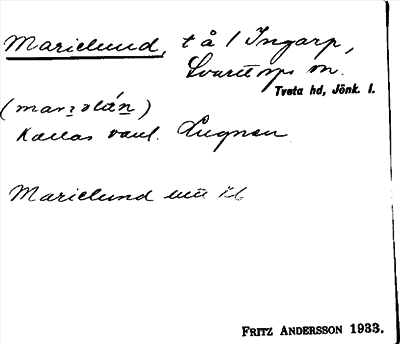 Marielund, t å 1 Ingarp,
Svarttorps sn.
Tveta hd, Jönk. l.
Kallas vanl. Lugnen
Marielund
FRITZ ANDERSSON 1933.